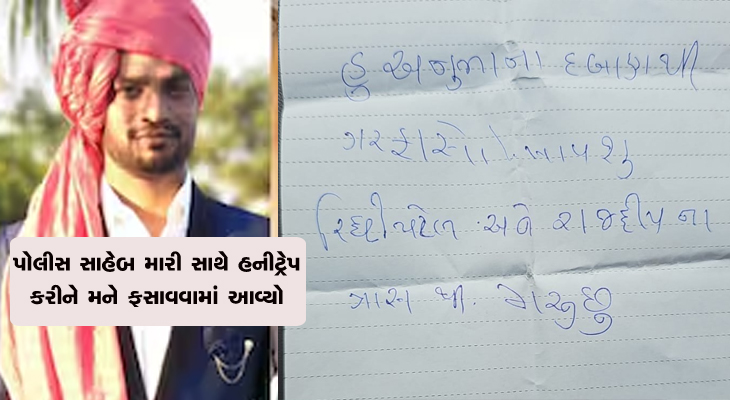 પોલીસ સાહેબ મારી સાથે હનીટ્રેપ
કરીને મને ફસાવવામાં આવ્યો
હુ અજુમાના દબાણથી
ગરફાસો ખાપ છુ
રિધ્ધી પટેલ અને રાજદીપ ના
ત્રાસ થી મરુ છુ